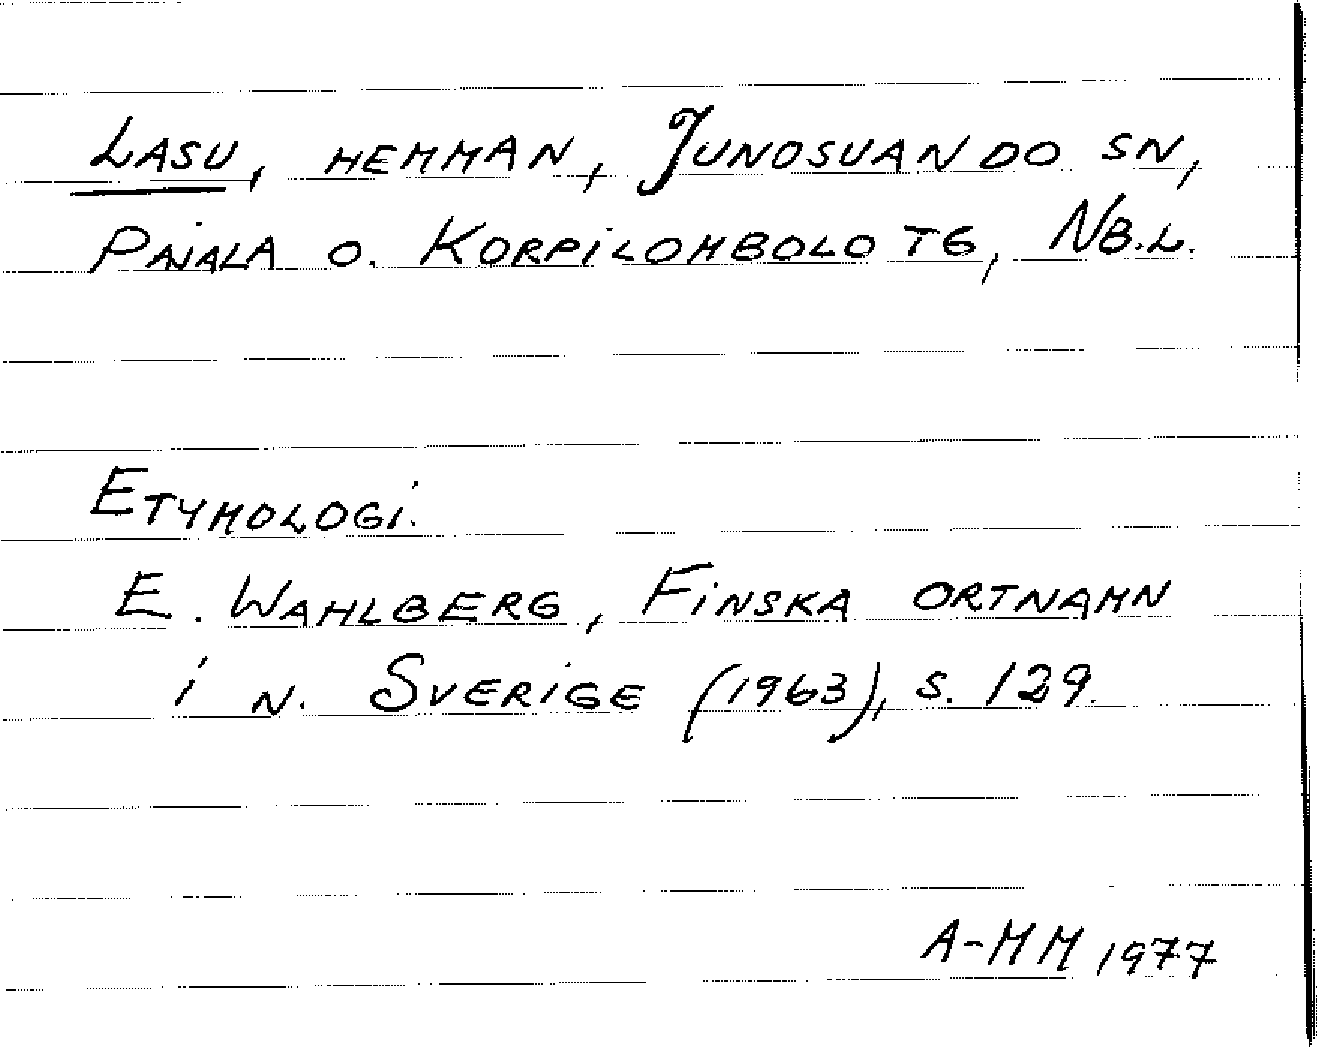 Lasu, hemman, Junosuando sn,
Pajala o. Korpilombolo tg, Nb.l.
Etymologi.
E. Wahlberg, Finska ortnamn
i n. Sverige (1963), s. 129.
A-MM 1977